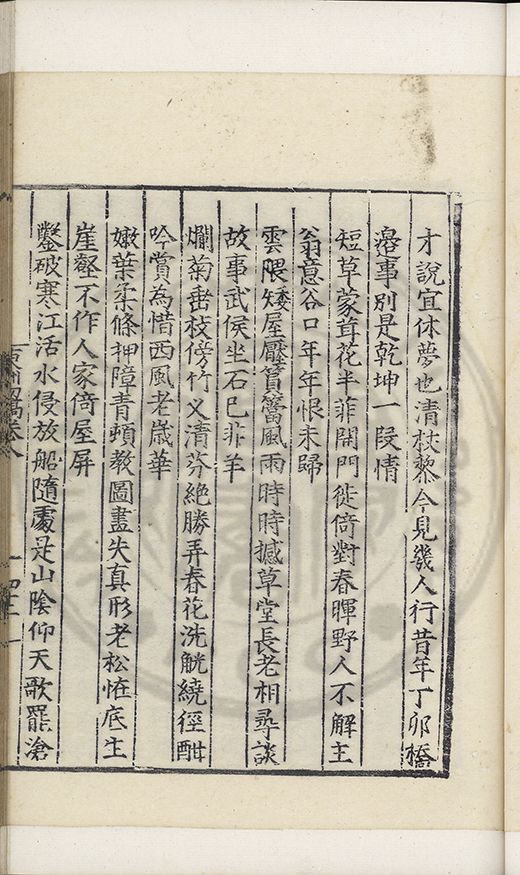 才說宜休夢也清杖藜今見幾人行昔年丁卯橋
邉事別是乾坤一段情
短草蒙茸花半菲閉門徙倚對春暉野人不解主
翁意谷口年年恨未歸
雲隈矮屋厭篔簹風雨時時撼草堂長老相尋談
故事武侯坐石已非羊
爛菊垂枝傍竹义清芬絶勝弄春花洗觥繞徑酣
吟賞為惜西風老歲華
嫩葉柔條押障青頓教圖畫失真形老松恠底生
崖壑不作人家倚屋屏
鑿破寒江活水侵放船隨處是山陰仰天歌罷滄